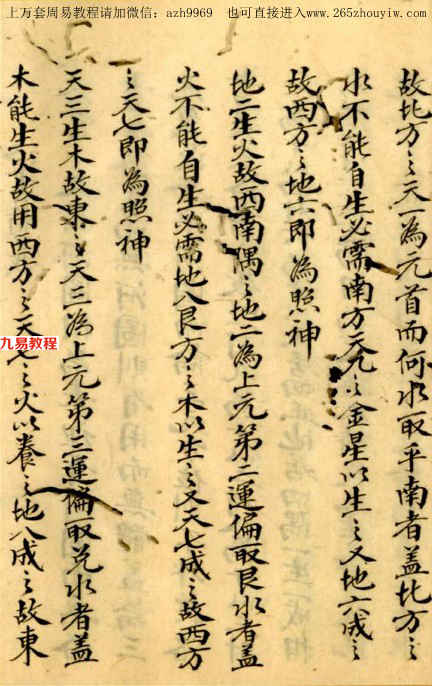 上万套周易教程请加微信：azh9969 也可直接进入www.265zhouyiw.com
故北方之天一為元首而何水取乎南者盖北方之
水不能自生必需南方天九之金星以生之又地六成之
故西方之地六即為照神
地二生火故西南隅之地二為上元第二運偏取艮水者盖
火不能自生必需地八艮方之木以生之又天七成之故西方
之天七即為照神
天三生木故東之天三為上元第三運偏取兑水者盖
木能生火故用西方之天七之火以養之地八成之故東
九易教程